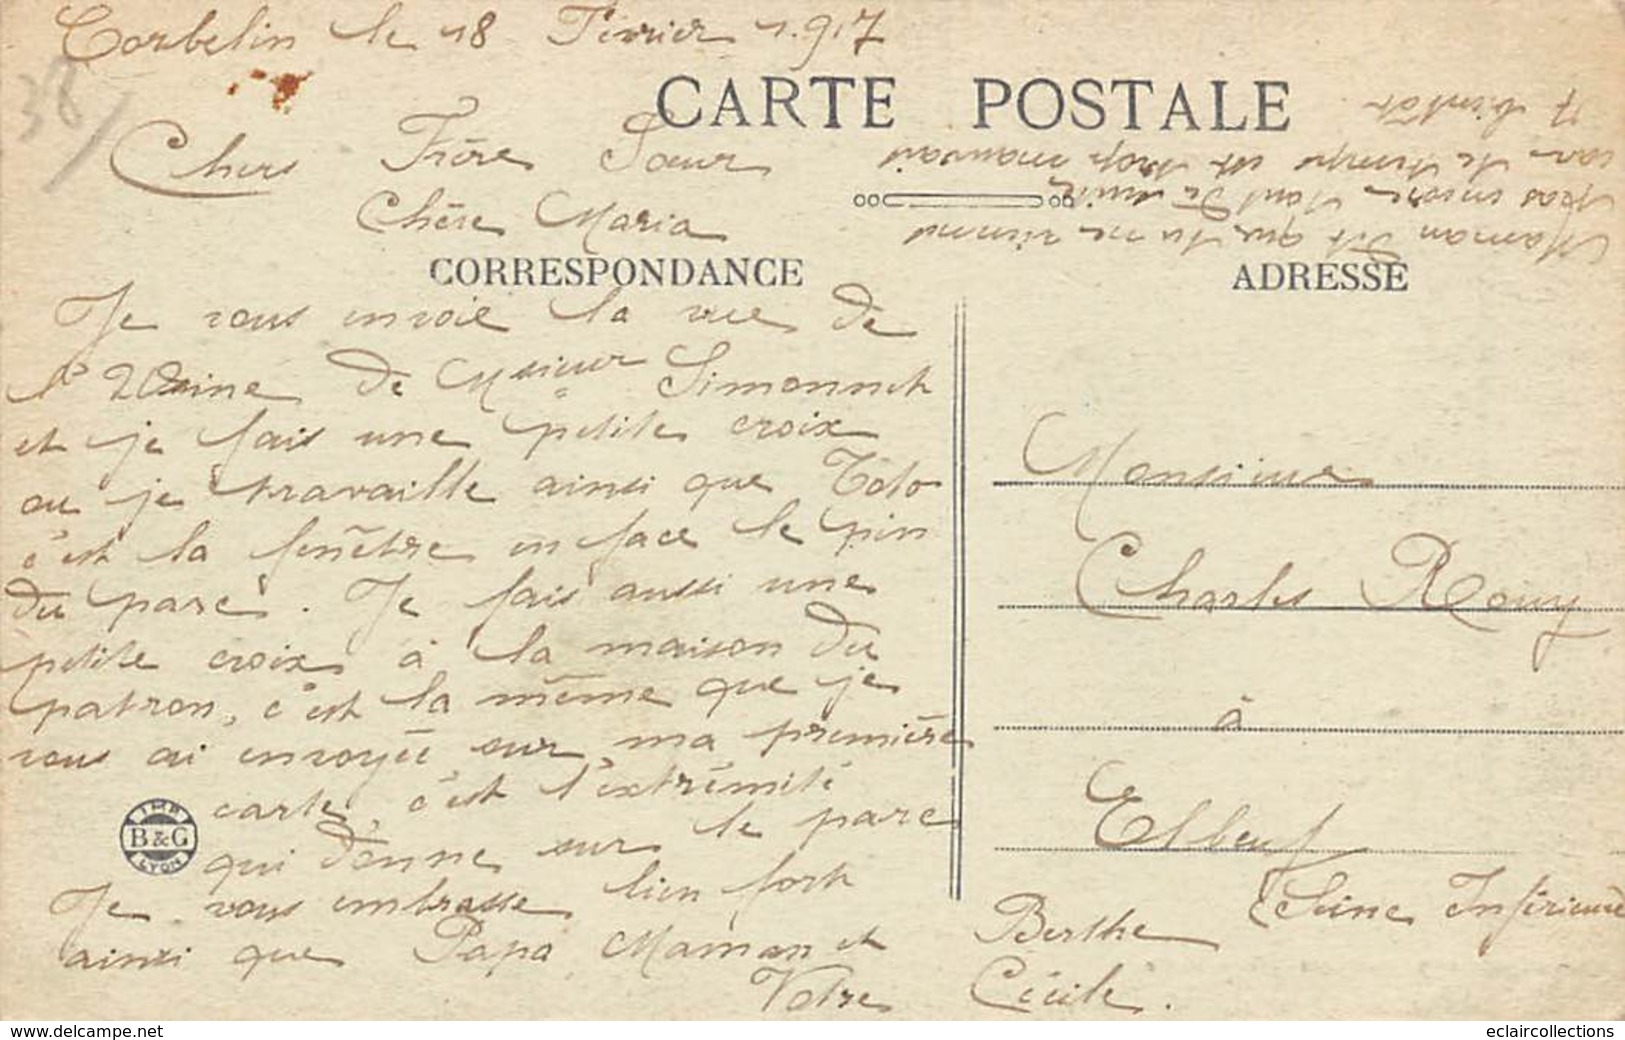 Corbelin le 18 Février 1.917
38/
CARTE POSTALE
Chers Frère Sœur
Chère Maria
CORRESPONDANCE
ADRESSE
Je vous envoie la vue de
l'Usine de Monsieur Simonnet
et je fais une petite croix
ou je travaille ainsi que Toto
c'est la fenêtre en face le pin
du parc. Je fais aussi une
petite croix à la maison du
patron, c'est la même que je
vous ai envoyée sur ma première
carte, c'est l'extrémité
qui donne sur le parc
Je vous embrasse bien fort
ainsi que Papa Maman et
Berthe
Votre Cécile.
IMP
B&G
LYON
Monsieur
Charles Rouy
à
Elbeuf
Seine Inférieure
Maman dit que tu ne viennes
pas encore tout de suite
car le temps est trop mauvais
A bientôt
eclaircollections
www.delcampe.net